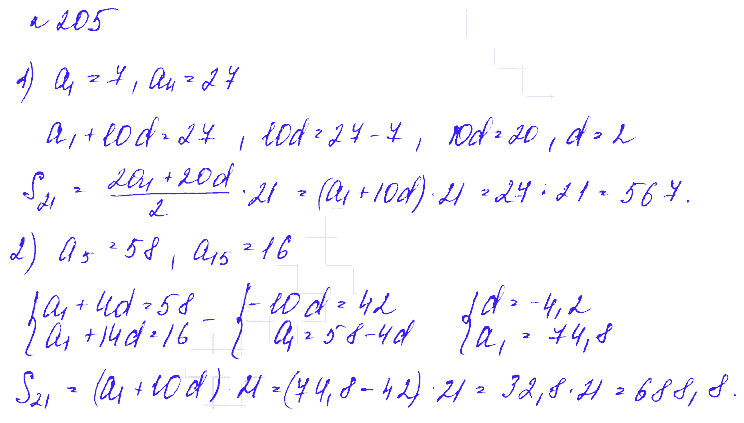 № 205
1) a₁ = 7, a₁₁ = 27
a₁ + 10d = 27, 10d = 27 - 7, 10d = 20, d = 2
S₂₁ = (2a₁ + 20d)/2 · 21 = (a₁ + 10d) · 21 = 27 · 21 = 567.
2) a₅ = 58, a₁₅ = 16
{a₁ + 4d = 58 - {-10d = 42 {d = -4,2
{a₁ + 14d = 16 {a₁ = 58 - 4d {a₁ = 74,8
S₂₁ = (a₁ + 10d) · 21 = (74,8 - 42) · 21 = 32,8 · 21 = 688,8.